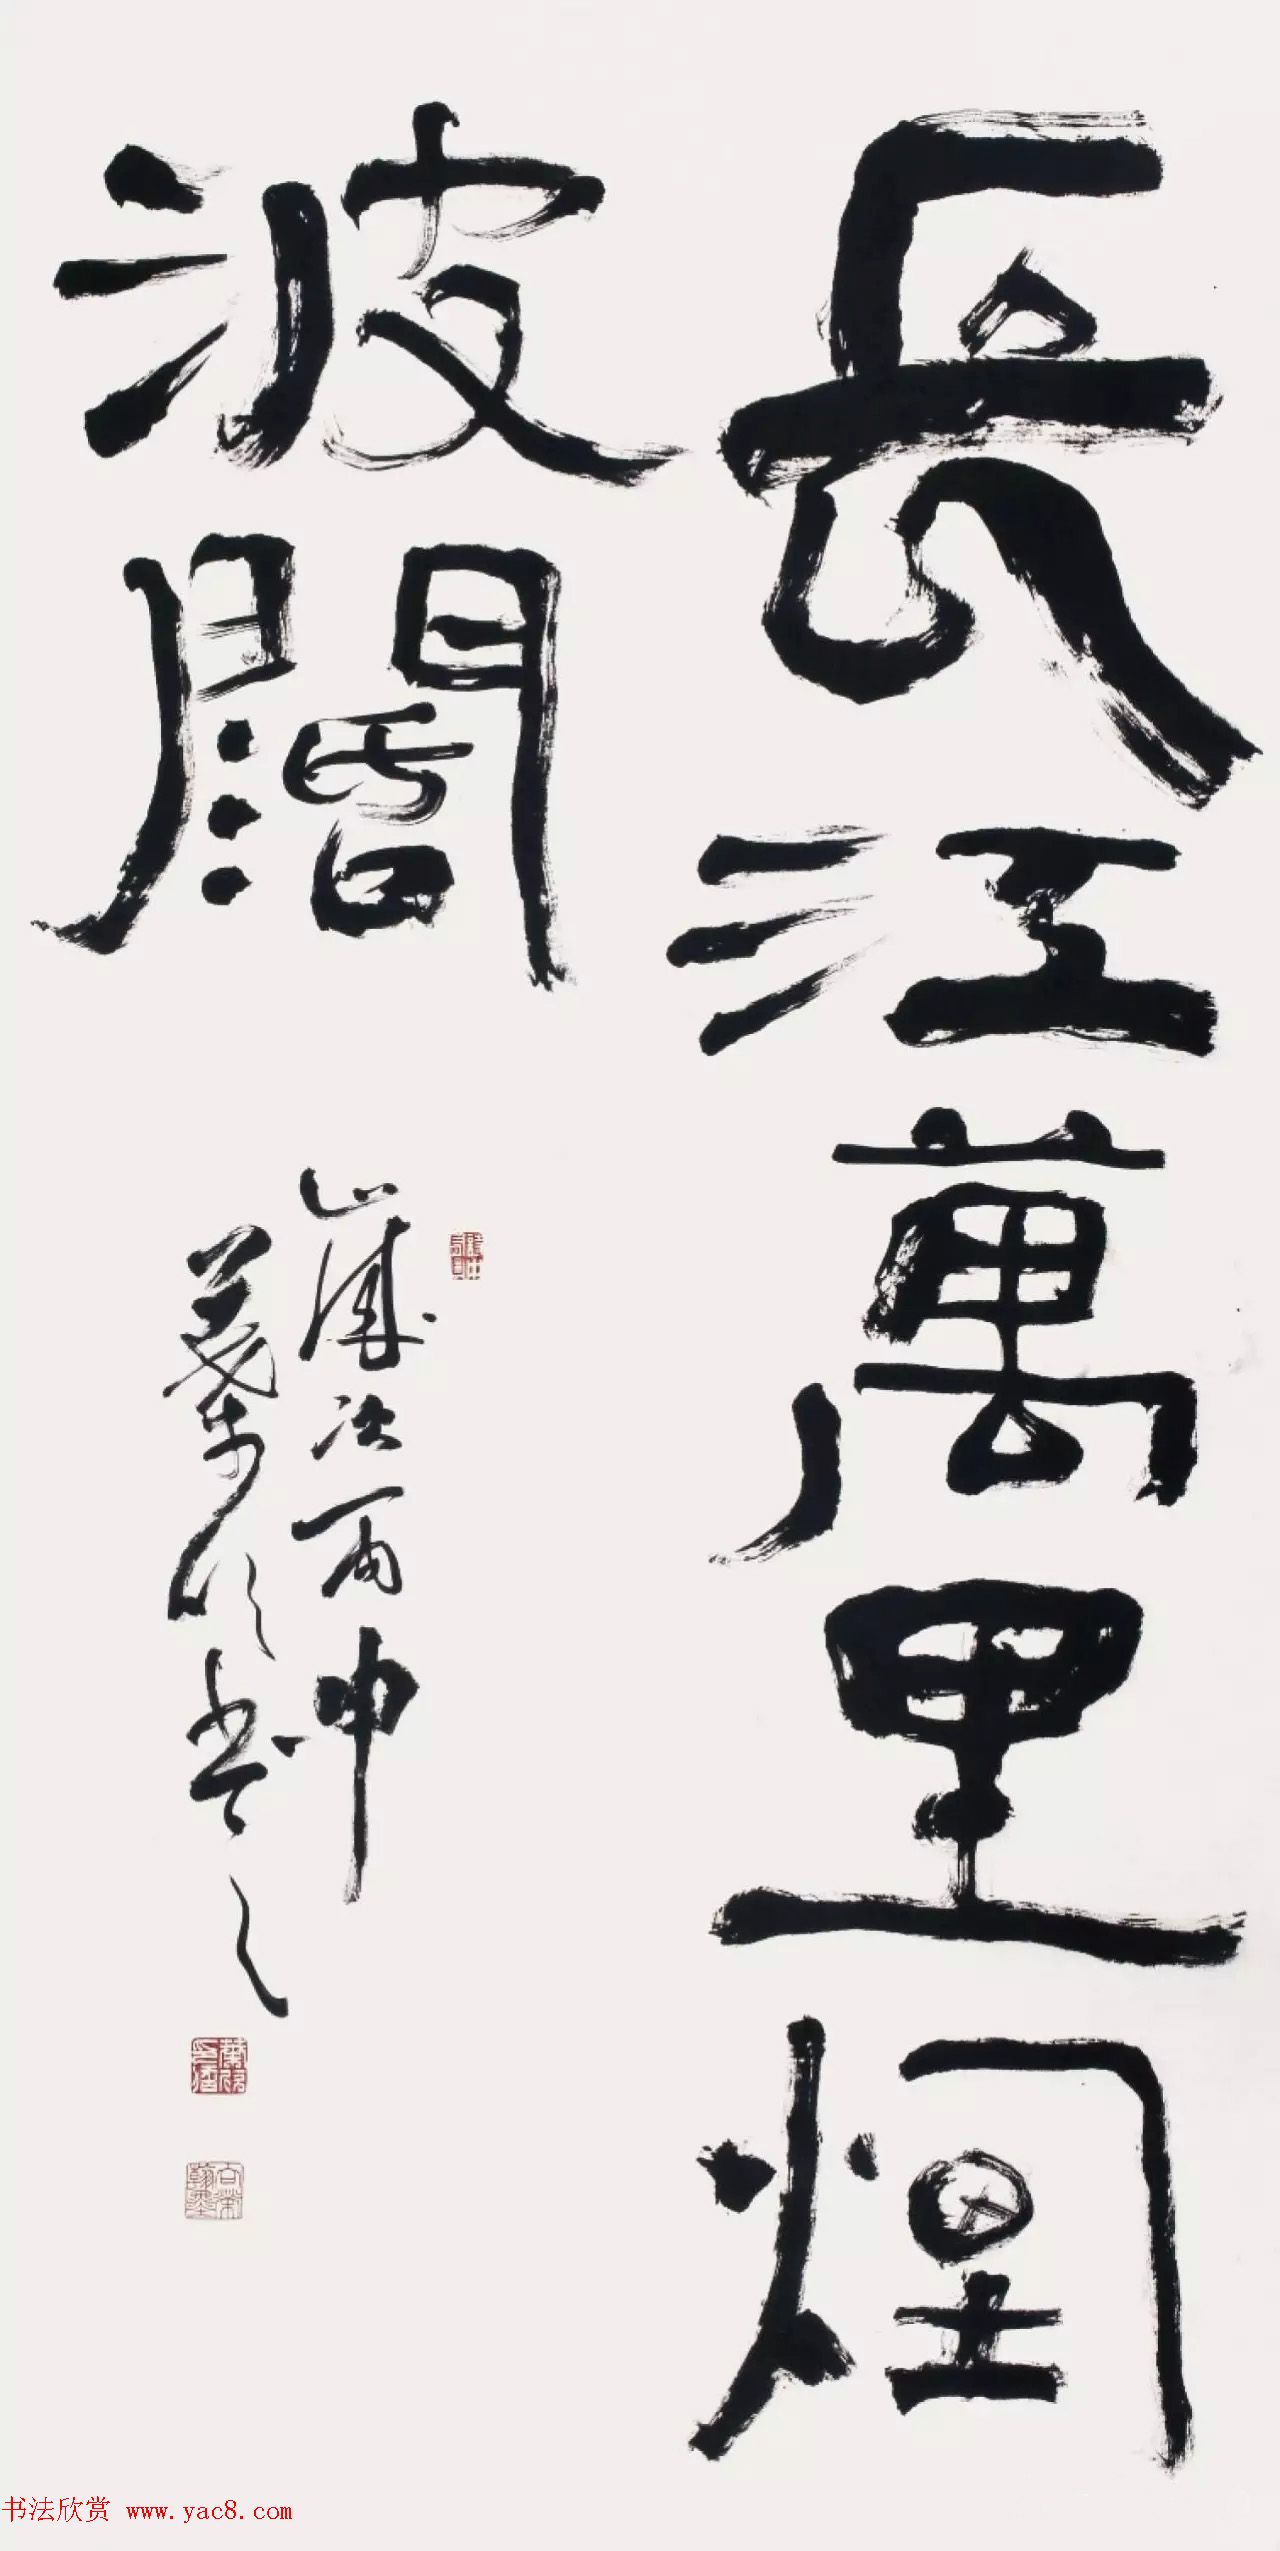 長江萬里煙
波闊
歲次丙申
葉書之
书法欣赏 www.yac8.com